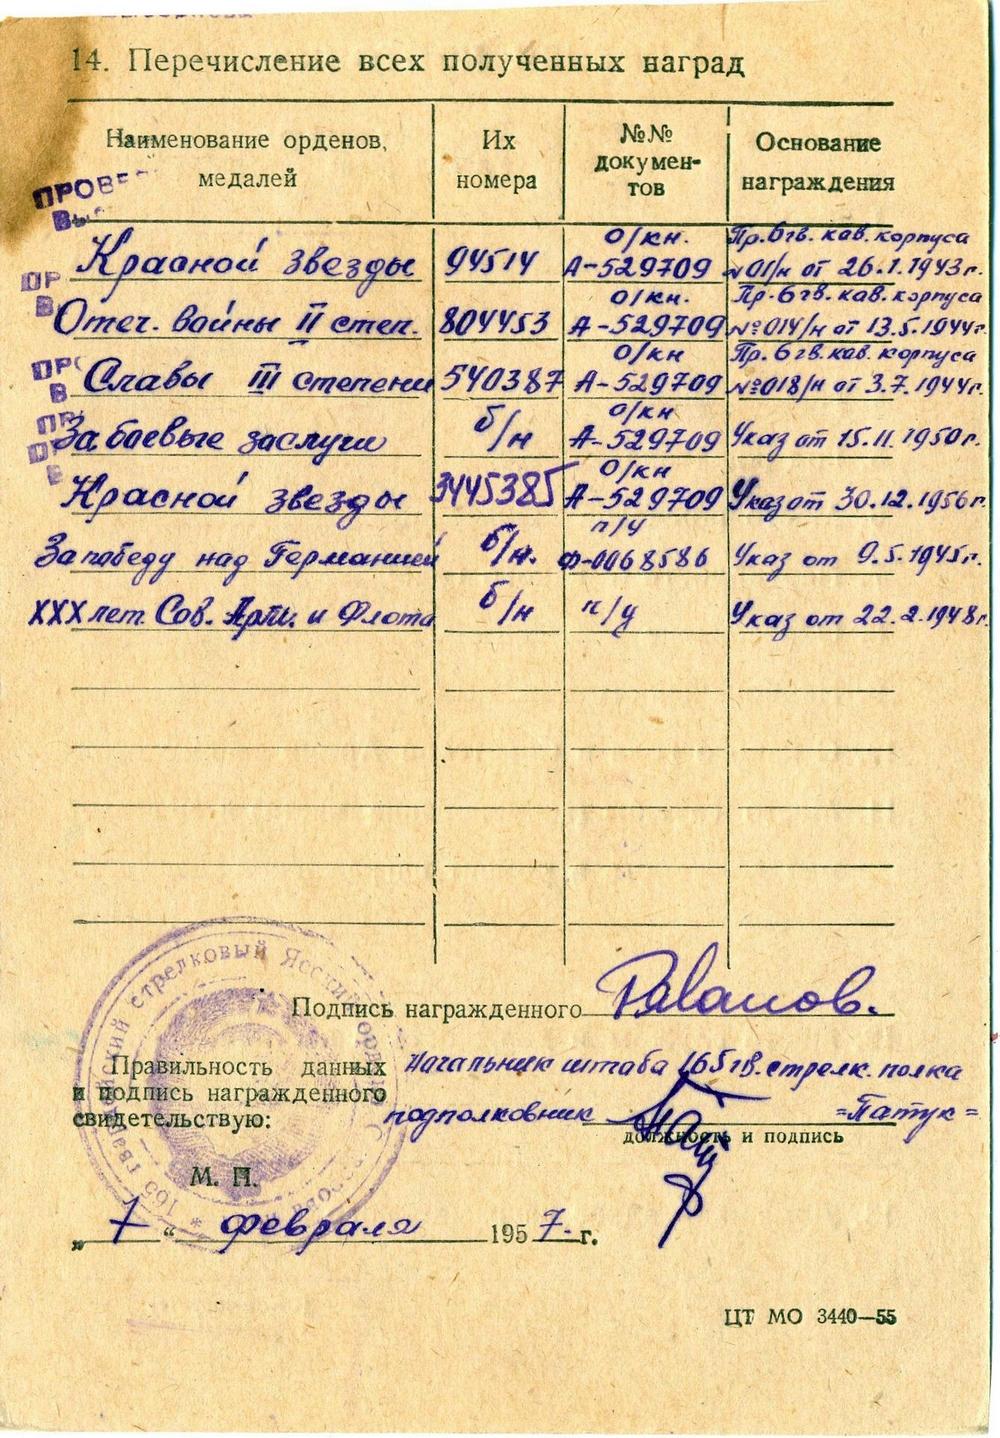 14. Перечисление всех полученных наград
Наименование орденов, медалей
Их номера
№№ докумен-тов
Основание награждения
Красной звезды 94514 о/кн. А-529709 Пр. 6 гв. кав. корпуса №01/н от 26.1.1943г.
Отеч. войны II степ. 804453 о/кн. А-529709 Пр. 6 гв. кав. корпуса №014/н от 13.5.1944г.
Славы III степени 540387 о/кн А-529709 Пр. 6 гв. кав. корпуса №018/н от 3.7.1944г.
За боевые заслуги б/н о/кн А-529709 Указ от 15.11.1950г.
Красной звезды 3445385 о/кн А-529709 Указ от 30.12.1956г.
За победу над Германией б/н. п/у Ф-0068586 Указ от 9.5.1945г.
XXX лет Сов. Арм. и Флота б/н п/у Указ от 22.2.1948г.
Подпись награжденного
Правильность данных
и подпись награжденного
свидетельствую:
Начальник штаба 165 гв. стрелк. полка
подполковник =Патук=
должность и подпись
165 гвардейский стрелковый Ясский
М. П.
„ 7 “ февраля 1957. г.
ЦТ МО 3440—55